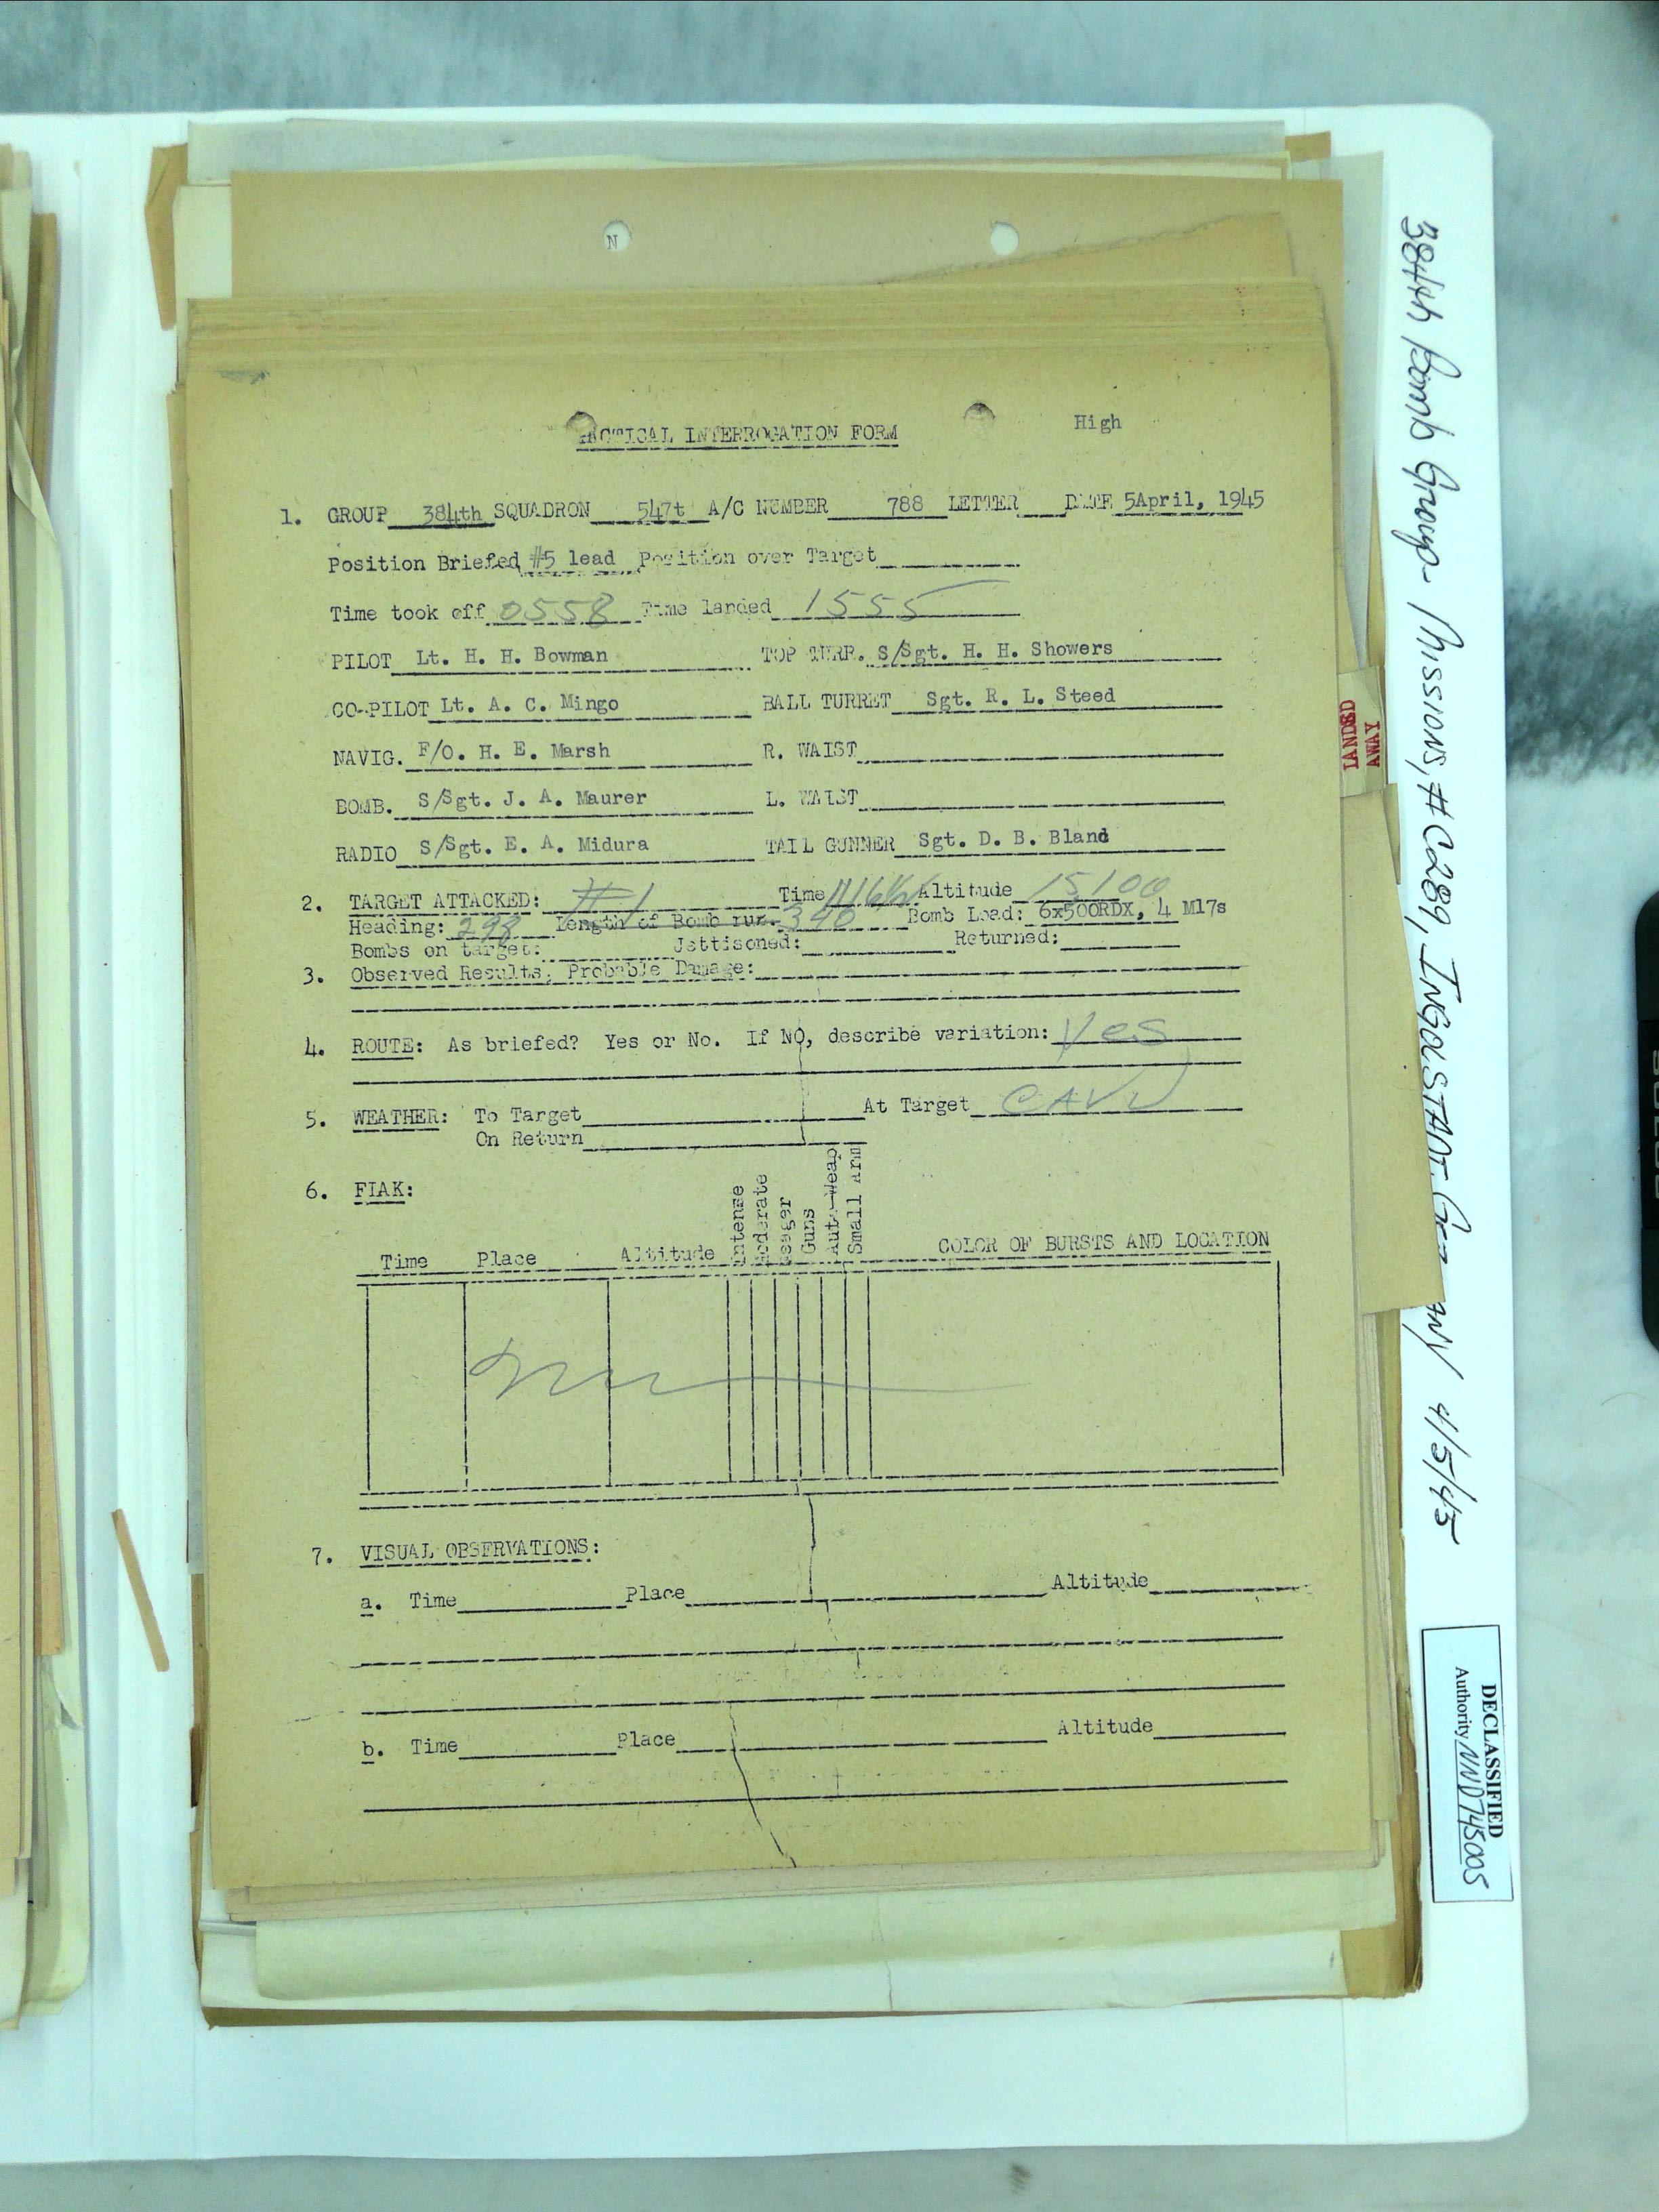 N
High
TACTICAL INTERROGATION FORM
1. GROUP 384th SQUADRON 547t A/C NUMBER 788 LETTER DATE 5April, 1945
Position Briefed #5 lead Position over Target
Time took off 0558 Time landed 1555
PILOT Lt. H. H. Bowman TOP TURR. S/Sgt. H. H. Showers
CO-PILOT Lt. A. C. Mingo BALL TURRET Sgt. R. L. Steed
NAVIG. F/O. H. E. Marsh R. WAIST
BOMB. S/Sgt. J. A. Maurer L. WAIST
RADIO S/Sgt. E. A. Midura TAIL GUNNER Sgt. D. B. Bland
2. TARGET ATTACKED: #1 Time 1116½ Altitude 15100
Heading: 298 Length of Bomb run: 340 Bomb Load: 6x500RDX, 4 M17s
Bombs on target: Jettisoned: Returned:
3. Observed Results, Probable Damage:
4. ROUTE: As briefed? Yes or No. If NO, describe variation: Yes
5. WEATHER: To Target At Target CAVU
On Return
6. FlAK:
Time Place Altitude Intense Moderate Meager Guns Auto-Weap Small Arm COLOR OF BURSTS AND LOCATION
7. VISUAL OBSERVATIONS:
a. Time Place Altitude
b. Time Place Altitude
LANDED
AWAY
384th Bomb Group - Missions, # C289, INGOLSTADT, 4/5/45
DECLASSIFIED
Authority NND745005